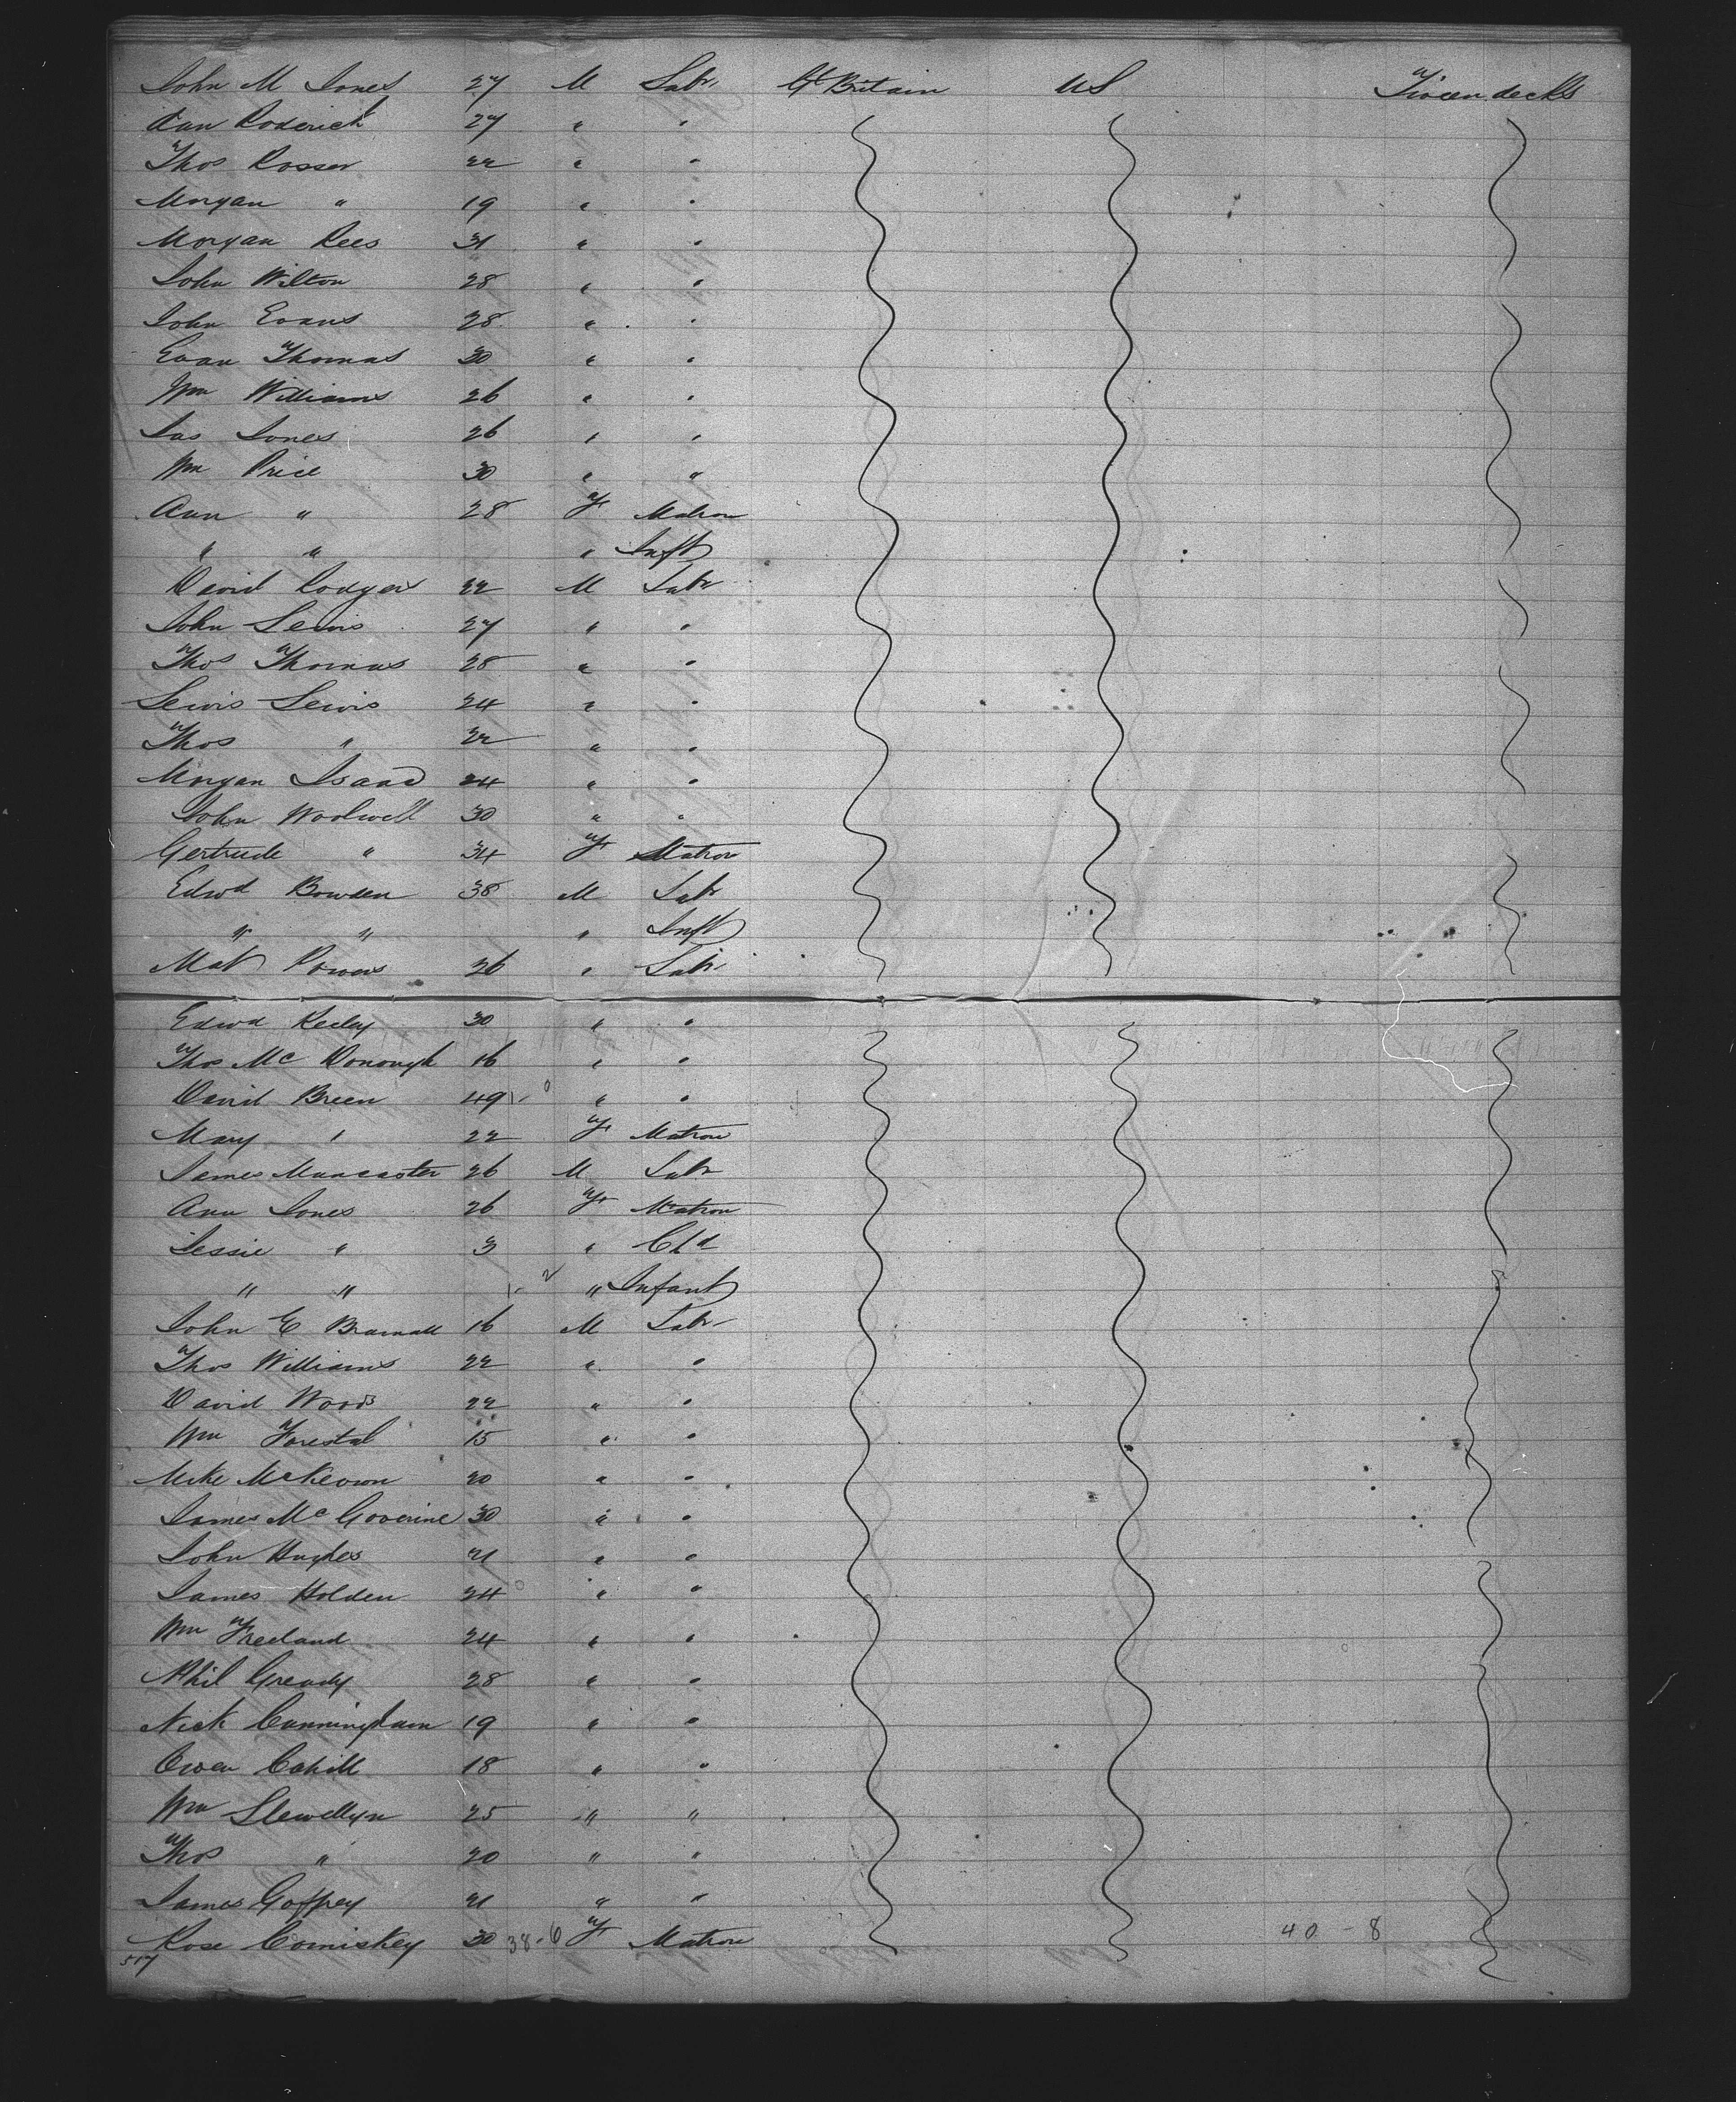 John M Jones 27 M Labr Gt Britain US Tween decks
Dan Roderick 27 " "
Thos Rosser 22 " "
Morgan " 19 " "
Morgan Rees 31 " "
John Wilton 28 " "
John Evans 28 " "
Evan Thomas 30 " "
Wm Williams 26 " "
Jas Jones 26 " "
Wm Price 30 " "
Ann " 28 F Matron
" " " Inft
David Rodgers 22 M Labr
John Lewis 27 " "
Thos Thomas 28 " "
Lewis Lewis 24 " "
Thos " 22 " "
Morgan Isaac 24 " "
John Woolwell 30 " "
Gertrude " 34 F Matron
Edwd Bowden 38 M Labr
" " " Inft
Mat Powers 26 " Labr
Edwd Keeley 30 " "
Thos Mc Donough 16 " "
David Breen 49 " "
Mary " 22 F Matron
James Muncaster 26 M Labr
Ann Jones 26 F Matron
Jessie " 3 " Chd
" " " Infant
John E Bramall 16 M Labr
Thos Williams 22 " "
David Woods 22 " "
Wm Forestal 15 " "
Mike McKeown 20 " "
James Mc Goverine 30 " "
John Hughes 21 " "
James Holden 24 " "
Wm Freeland 24 " "
Phil Gready 28 " "
Nick Cunningham 19 " "
Owen Cahill 18 " "
Wm Llewellyn 25 " "
Thos " 20 " "
James Goffrey 21 " "
Rose Comiskey 30 38-6 F Matron 40-8
517